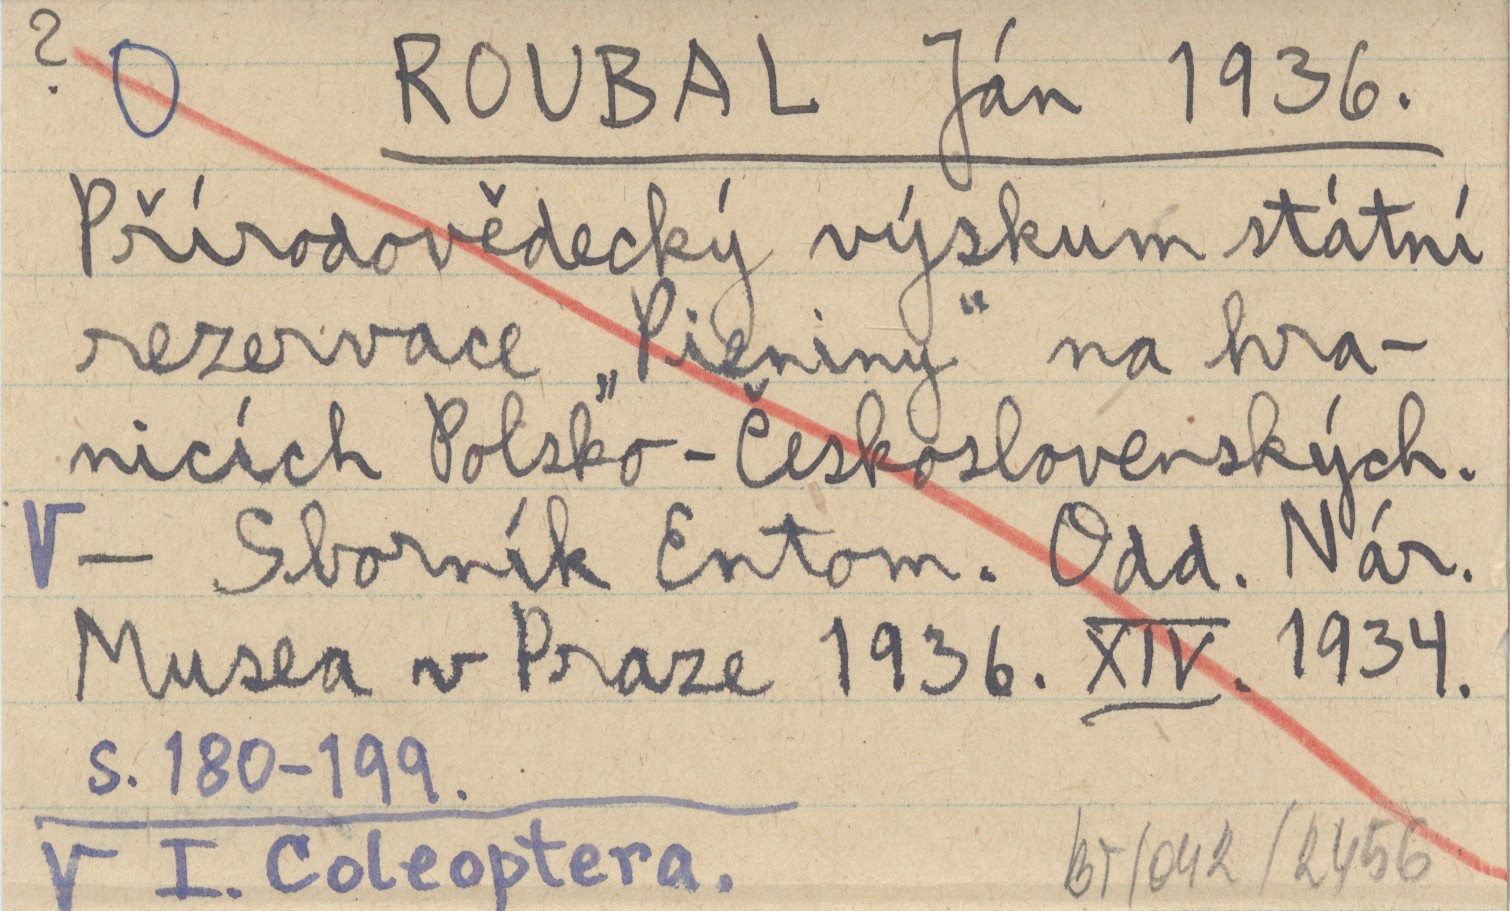 ? O ROUBAL Ján 1936.
Přírodovědecký výskum státní
rezervace „Pieniny“ na hra-
nicích Polsko-Československých.
V — Sborník Entom. Odd. Nár.
Musea v Praze 1936. XIV. 1934.
s. 180-199.
V I. Coleoptera.
BT/042/2456